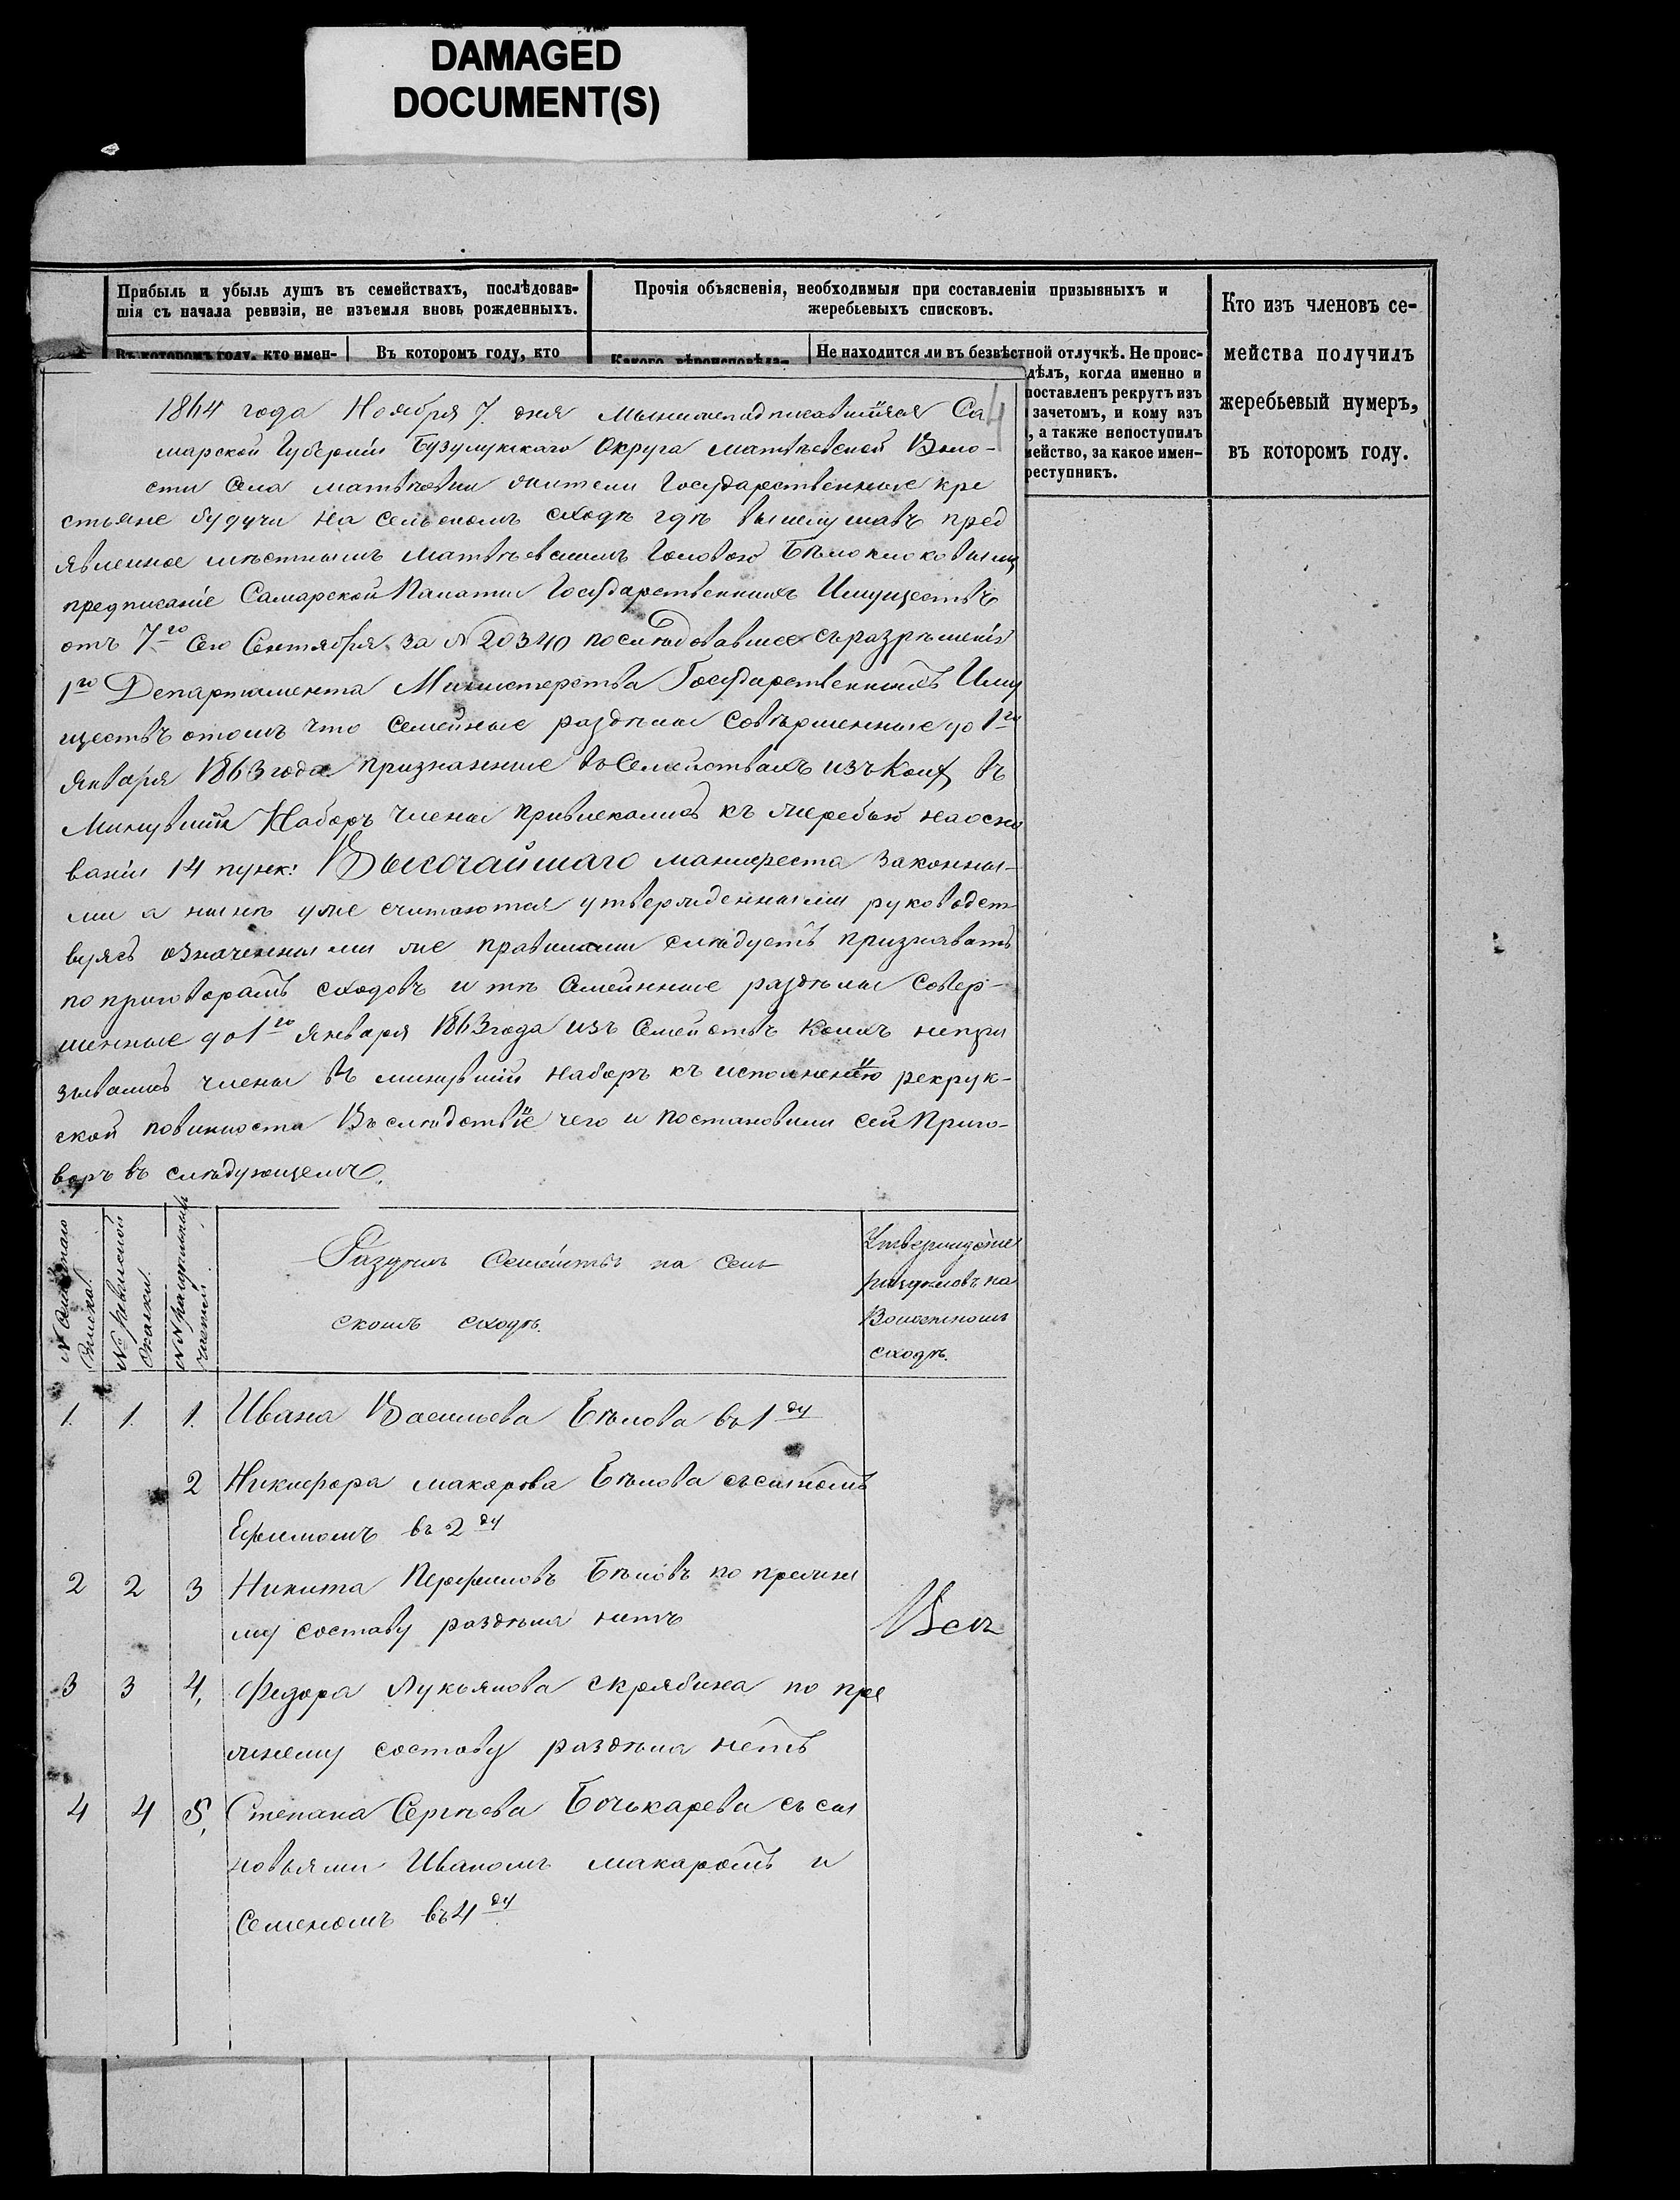 DAMAGED
DOCUMENT(S)
Прибыль и убыль душъ въ семействахъ, послѣдовав-
шія съ начала ревизіи, не изъемля вновь рожденныхъ.
Въ которомъ году, кто имен-
Въ которомъ году, кто
Прочія объясненія, необходимыя при составленіи призывныхъ и
жеребьевыхъ списковъ.
Какого вѣроисповѣда-
Не находится ли въ безвѣстной отлучкѣ. Не проис-
дѣлъ, когда именно и
поставленъ рекрутъ изъ
зачетомъ, и кому изъ
, а также непоступилъ
мейство, за какое имен-
реступникъ.
Кто изъ членовъ се-
мейства получилъ
жеребьевый нумеръ,
въ которомъ году.
4
1864 года Ноября 7. дня Мынижеподписавшіися Са
марской Губерніи Бузулукскаго Округа матвѣевской Воло-
сти Села матвѣевки жители Государственные кре
стьяне будучи на сельскомъ сходѣ гдѣ выслушавъ пред
явленное мѣстнымъ Матвѣевскимъ Головою Бѣлоклоковымъ
предписаніе Самарской Палаты Государственныхъ Имуществъ
отъ 7го Сего Сентября за № 20340 последовавшее съразрѣшенія
1го Департамента Министерства Государственныхъ Иму
ществъ отомъ что Семейные раздѣлы Совѣршенные до 1го
Января 1863 года признанные въ Семействахъ изъ Коихъ въ
Минувшій Наборъ члены привлекались къ жеребью наосно
ваніи 14 пунк: Высочайшаго манифеста законны-
ми а нынѣ уже считаются утвержденными руководст
вуясь означенными же правилами слѣдуетъ признавать
по приговорамъ сходовъ и тѣ Семейные раздѣлы совер-
шенные до 1го Января 1863 года изъ Семействъ Коихъ непри
зывались члены въ минувшій наборъ къ исполненію рекрут-
ской повинности Въ слѣдствіе чего и постановили сей Приго-
воръ въ слѣдующемъ.
№ Семейнаго Списка.
№ ревизской Сказки.
№№ раздѣльныхъ частей.
Раздѣлъ Семействъ на Сель
скомъ сходѣ.
Утвержденіе
раздѣловъ на
Волостномъ
сходѣ.
1. 1. 1. Ивана Васильева Бѣлова въ 1 ду
2 Никифора макарова Бѣлова съсыномъ
Ефимомъ въ 2 ду
2 2 3 Никита Перфиловъ Бѣловъ по прежня
му составу раздѣла нетъ
Всѣ
3 3 4, Федора Лукьянова Скрябина по пре
жнему составу раздѣла нетъ
4 4 5, Степана Сергѣева Бочькарева съ сы
новьями Иваномъ макаромъ и
Семеномъ въ 4 ду